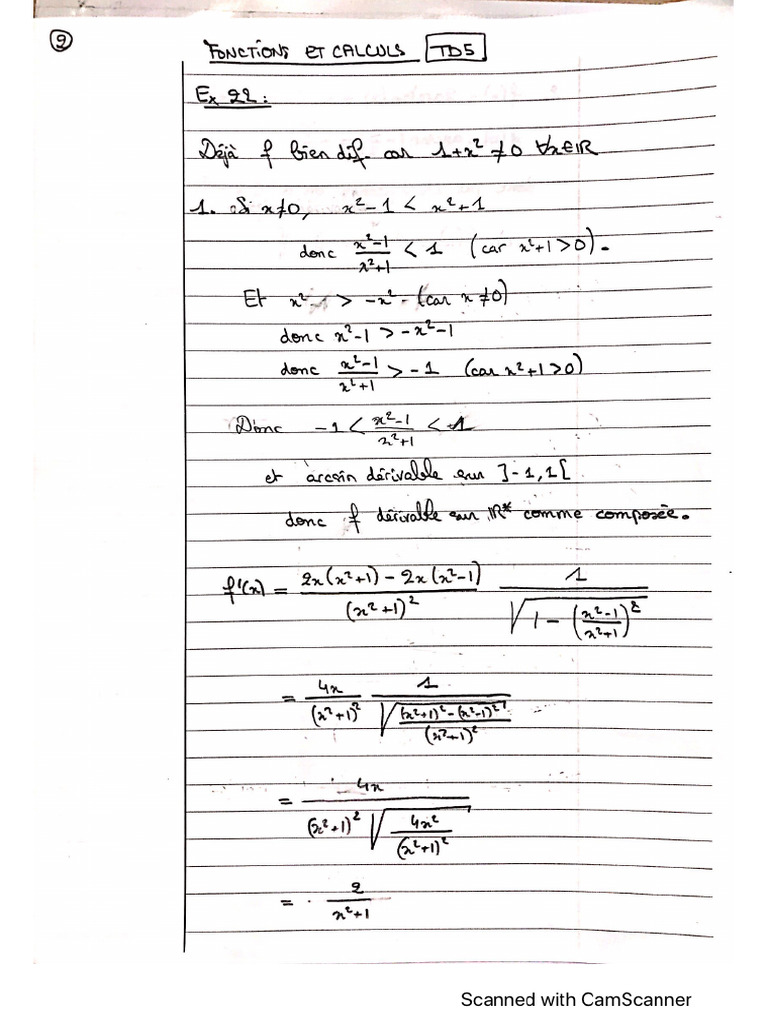 9
FONCTIONS ET CALCULS TD5
Ex 22 :
Déjà f bien déf. car 1+x² ≠ 0 ∀x∈ℝ
1. Si x≠0, x²-1 < x²+1
donc (x²-1)/(x²+1) < 1 (car x²+1>0).
Et x² > -x² (car x≠0)
donc x²-1 > -x²-1
donc (x²-1)/(x²+1) > -1 (car x²+1>0)
Donc -1 < (x²-1)/(x²+1) < 1
et arcsin dérivable sur ]-1,1[
donc f dérivable sur ℝ* comme composée.
f'(x) = (2x(x²+1) - 2x(x²-1))/(x²+1)² 1/√(1 - ((x²-1)/(x²+1))²)
= 4x/(x²+1)² 1/√(((x²+1)²-(x²-1)²)/(x²+1)²)
= 4x/((x²+1)² √(4x²/(x²+1)²))
= 2/(x²+1)
Scanned with CamScanner